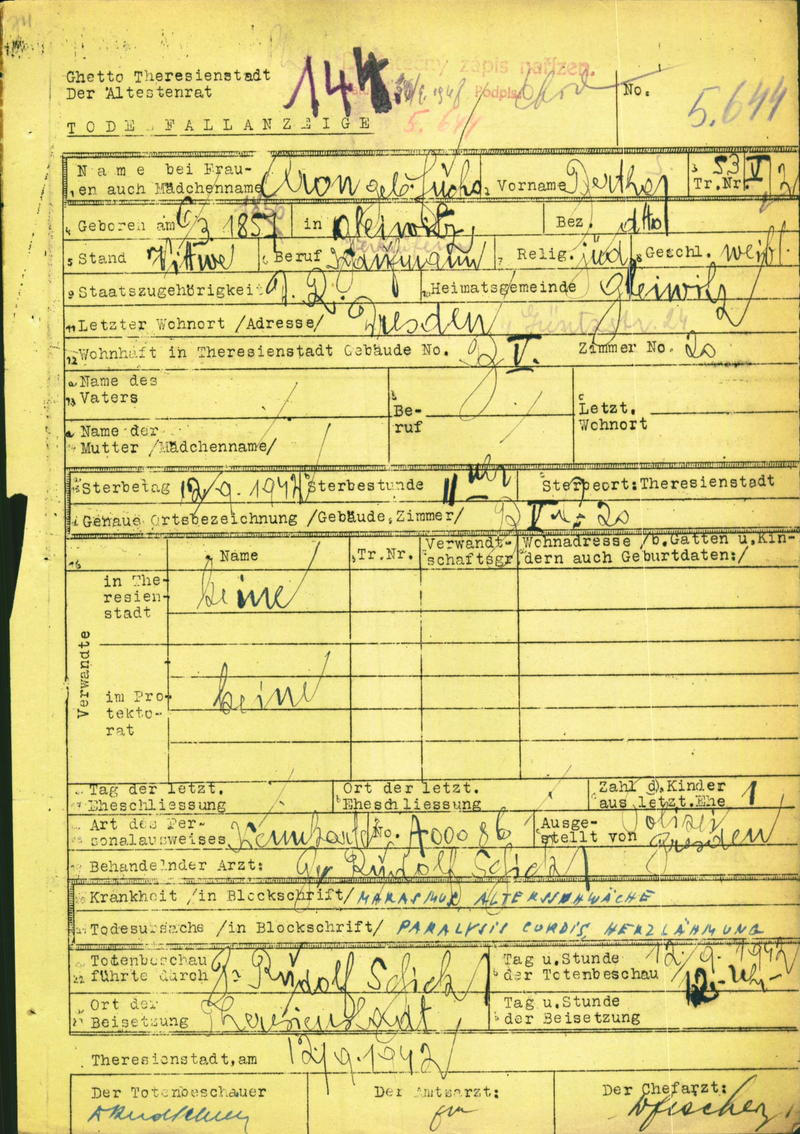 Ghetto Theresienstadt
Der Ältestenrat
144.
zápis nařízen.
1948 Podpis
No. 5.644
5.644
TODESFALLANZEIGE
Name bei Frau-
en auch Mädchenname Aron geb. Fuchs Vorname Bertha Tr.Nr. 53 V/2
Geboren am 1857 in Gleiwitz Bez. dtto
Stand Witwe Beruf Kaufmann Relig. jüd. Geschl. weibl.
Staatszugehörigkeit D.R. Heimatsgemeinde Gleiwitz
Letzter Wohnort /Adresse/ Dresden
Wohnhaft in Theresienstadt Gebäude No. Q V. Zimmer No. 20
Name des
Vaters
Be-
ruf
Letzt.
Wohnort
Name der
Mutter /Mädchenname/
Sterbetag 12/9. 1942 Sterbestunde 11 Uhr Sterbeort: Theresienstadt
Genaue Ortsbezeichnung /Gebäude, Zimmer/ Q V 20
Name Tr.Nr. Verwandt-
schaftsgr. Wohnadresse /b.Gatten u.Kin-
dern auch Geburtdaten:/
Verwandte
in The-
resien-
stadt keine
im Pro-
tekto-
rat keine
Tag der letzt.
Eheschliessung
Ort der letzt.
Eheschliessung
Zahl d. Kinder
aus letzt.Ehe 1
Art des Per-
sonalausweises Kennkarte No. A00086 Ausge-
stellt von Polizei Dresden
Behandelnder Arzt: Dr Rudolf Schick
Krankheit /in Blockschrift/ MARASMUS, ALTERSSCHWÄCHE
Todesursache /in Blockschrift/ PARALYSIS CORDIS HERZLÄHMUNG
Totenbeschau
führte durch Dr Rudolf Schick Tag u.Stunde
der Totenbeschau 12/9. 1942
12 Uhr
Ort der
Beisetzung Theresienstadt Tag u.Stunde
der Beisetzung
Theresienstadt, am 12/9.1942
Der Totenbeschauer Der Amtsarzt: Der Chefarzt: